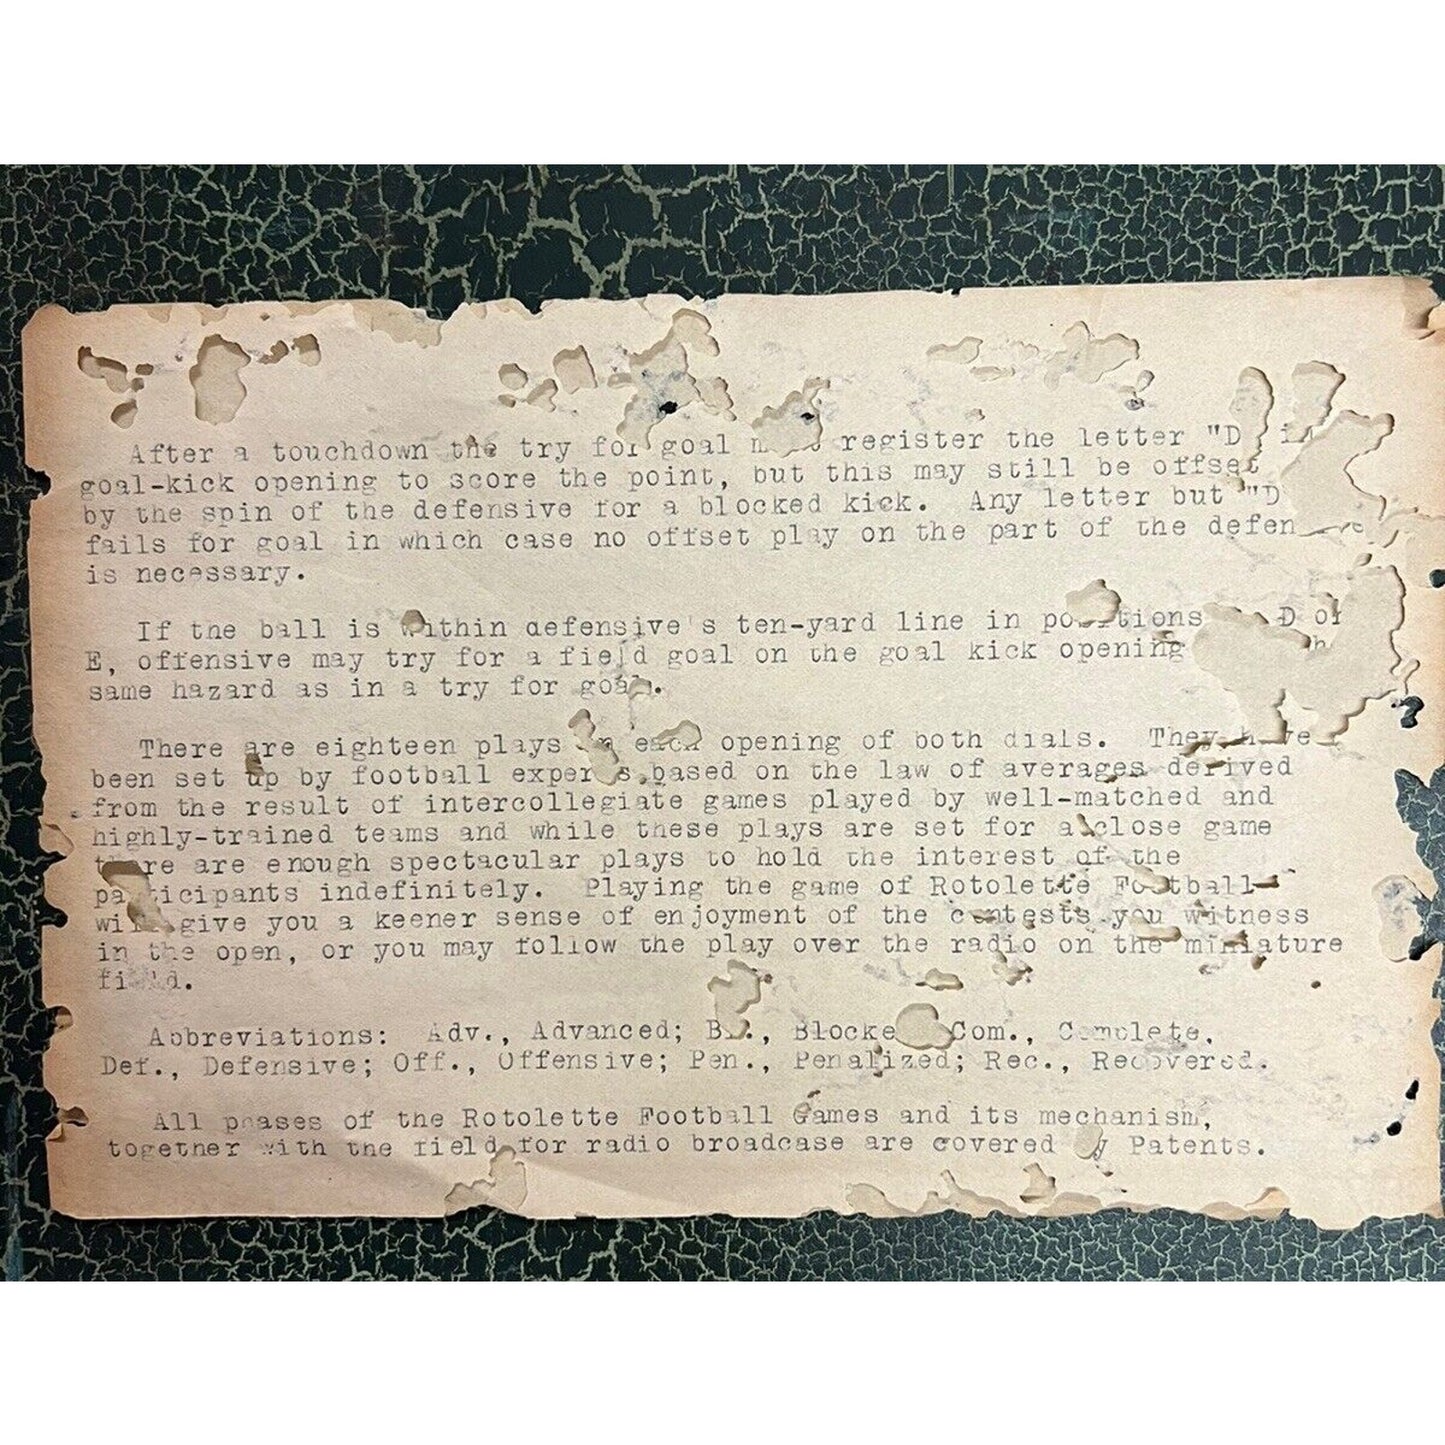 After a touchdown the try for goal must register the letter "D
goal-kick opening to score the point, but this may still be offset
by the spin of the defensive for a blocked kick. Any letter but "D
fails for goal in which case no offset play on the part of the defensive
is necessary.
If the ball is within defensive's ten-yard line in positions D or
E, offensive may try for a field goal on the goal kick opening
same hazard as in a try for goal.
There are eighteen plays in each opening of both dials. They have
been set up by football experts based on the law of averages derived
from the result of intercollegiate games played by well-matched and
highly-trained teams and while these plays are set for a close game
there are enough spectacular plays to hold the interest of the
participants indefinitely. Playing the game of Rotolette Football
will give you a keener sense of enjoyment of the contests you witness
in the open, or you may follow the play over the radio on the miniature
field.
Abbreviations: Adv., Advanced; Bl., Blocked Com., Complete.
Def., Defensive; Off., Offensive; Pen., Penalized; Rec., Recovered.
All phases of the Rotolette Football Games and its mechanism,
together with the field for radio broadcase are covered by Patents.